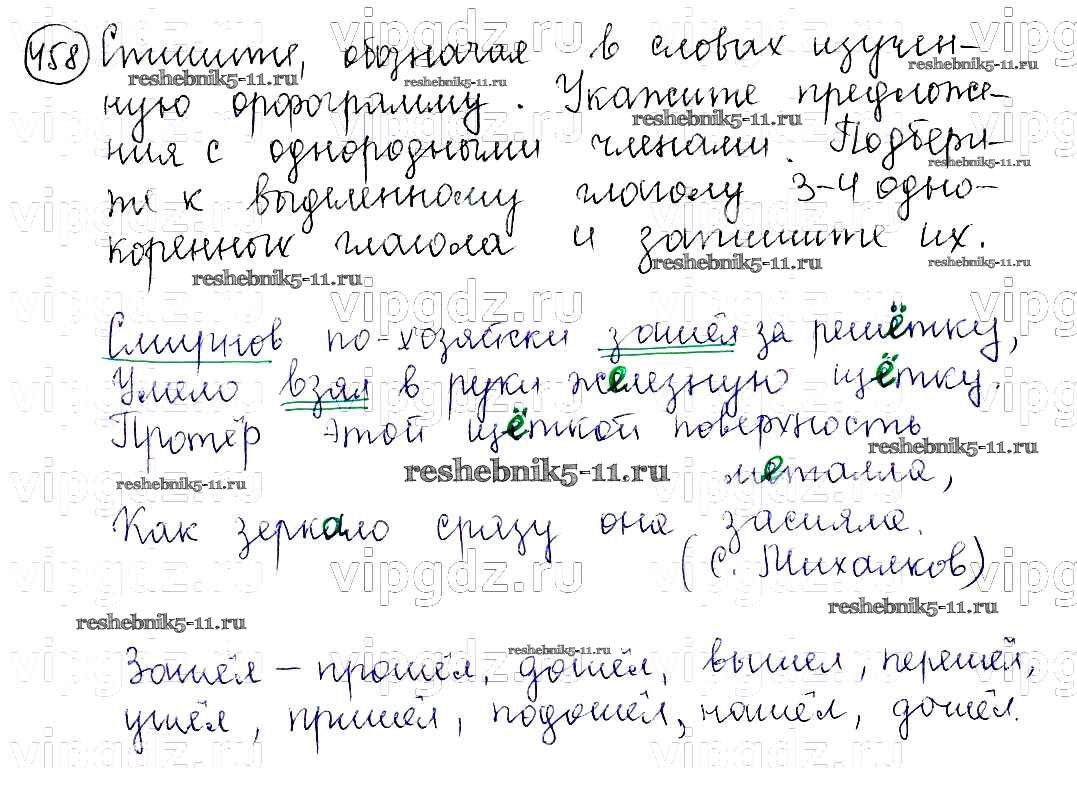 458 Спишите, обозначая в словах изучен-
ную орфограмму. Укажите предложе-
ния с однородными членами. Подбери-
те к выделенному глаголу 3-4 одно-
коренных глагола и запишите их.
Смирнов по-хозяйски зашёл за решётку,
Умело взял в руки железную щётку.
Протёр этой щёткой поверхность
металла,
Как зеркало сразу она засияла.
(С. Михалков)
Зашёл – прошёл, дошёл, вышел, перешёл,
ушёл, пришёл, подошёл, нашёл, дошёл.
vipgdz.ru
reshebnik5-11.ru